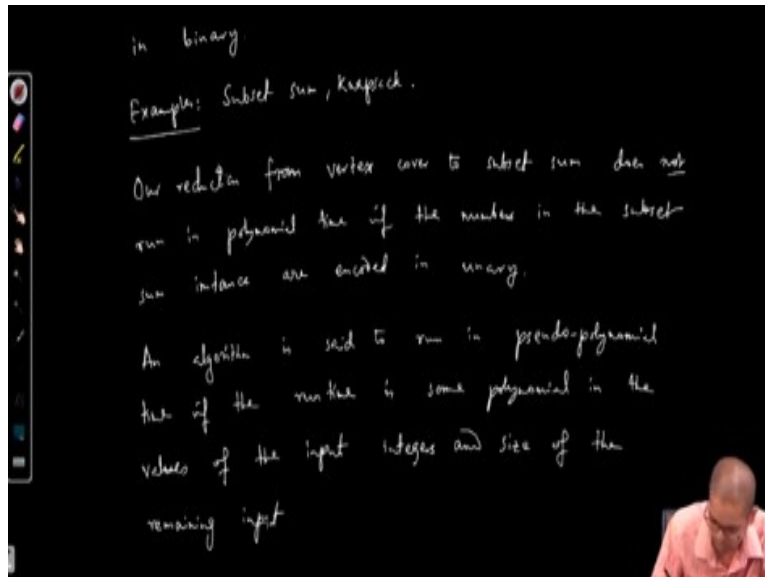 in binary.
Examples: Subset sum, Knapsack.
Our reduction from vertex cover to subset sum does not
run in polynomial time if the numbers in the subset
sum instance are encoded in unary.
An algorithm is said to run in pseudo-polynomial
time if the run time is some polynomial in the
values of the input integers and size of the
remaining input